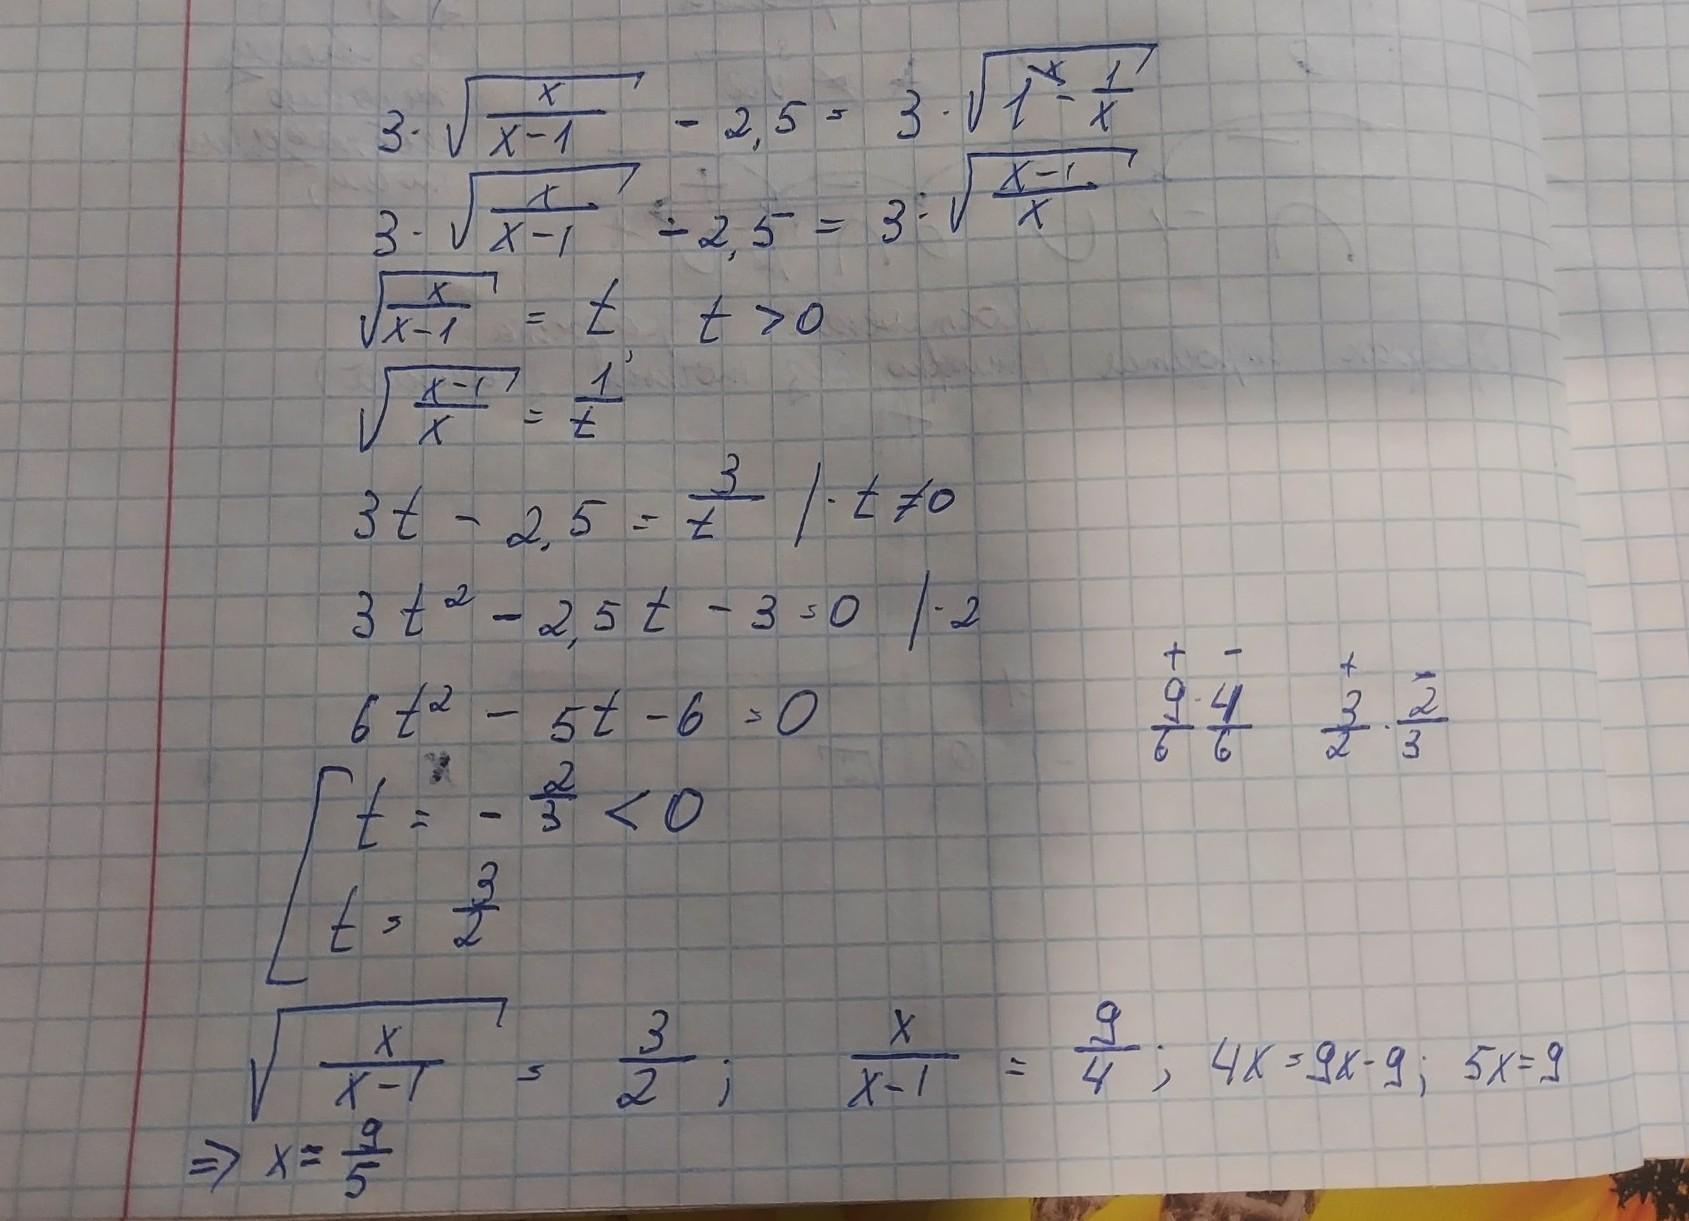 3·√(x/(x-1)) - 2,5 = 3·√(1^x - 1/x)
3·√(x/(x-1)) - 2,5 = 3·√((x-1)/x)
√(x/(x-1)) = t, t > 0
√((x-1)/x) = 1/t
3t - 2,5 = 3/t |· t ≠ 0
3t² - 2,5t - 3 = 0 |·2
+ - + -
6t² - 5t - 6 = 0 9/6 · 4/6 3/2 · 2/3
[ t = - 2/3 < 0
t = 3/2
√(x/(x-1)) = 3/2; x/(x-1) = 9/4; 4x = 9x-9; 5x=9
=> x = 9/5